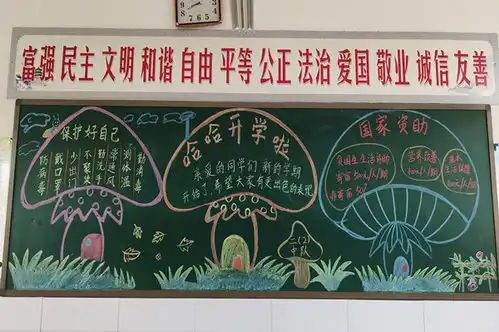 富强 民主 文明 和谐 自由 平等 公正 法治 爱国 敬业 诚信 友善
保护好自己
防病毒
戴口罩
少出门
不聚集
勤洗手
常通风
测体温
勤消毒
哈哈开学啦
亲爱的同学们新的学期
开始了希望大家有更出色的表现
二(2)
中队
国家资助
营养改善